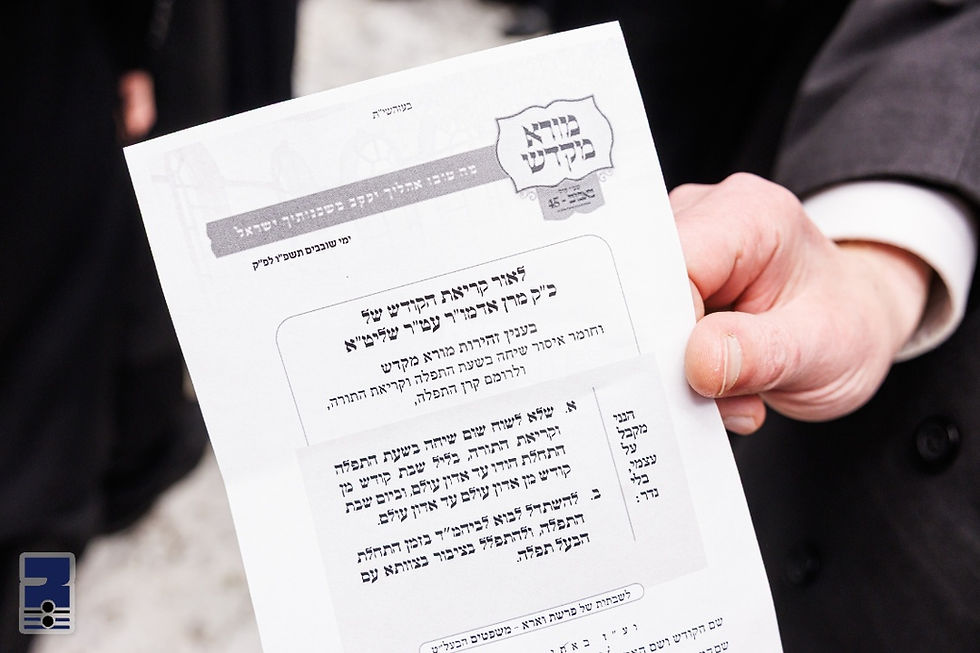 בעזהשי"ת
מורא
מקדש
באבוב - 45
מה טובו אהליך יעקב משכנותיך ישראל
ימי שובבים תשפ"ו לפ"ק
לאור קריאת הקודש של
כ"ק מרן אדמו"ר עט"ר שליט"א
בענין זהירות מורא מקדש
וחומר איסור שיחה בשעת התפלה וקריאת התורה,
ולרומם קרן התפלה,
הנני
מקבל
על
עצמי,
בלי
נדר:
א. שלא לשוח שום שיחה בשעת התפלה
וקריאת התורה, בליל שבת קודש מן
התחלת הודו עד אדון עולם, וביום שבת
קודש מן אדון עולם עד אדון עולם.
ב. להשתדל לבוא לביהמ"ד בזמן התחלת
התפלה, ולהתפלל בציבור בצוותא עם
הבעל תפלה.
לשבתות של פרשת וארא - משפטים הבעל"ט
שם הקודש ושם